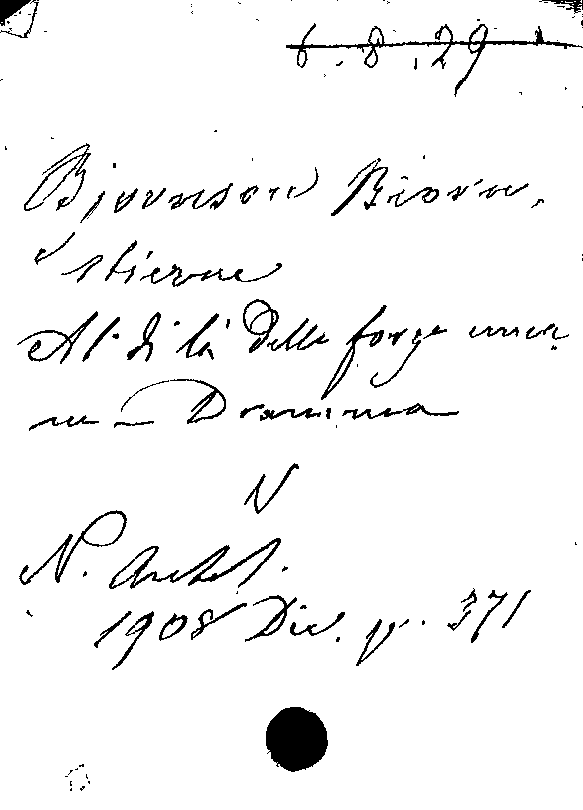 6.8.29
Bjornson Biorn,
stierne
Al di là delle forze uma,
ne - Dramma
V
N. Antol.
1908 Dic. p. 371